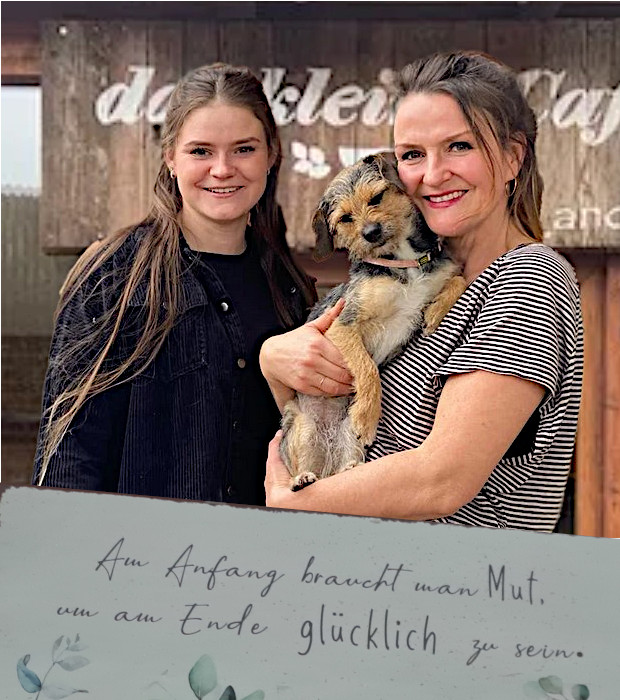 das kleine Café
and
Am Anfang braucht man Mut,
um am Ende glücklich zu sein.